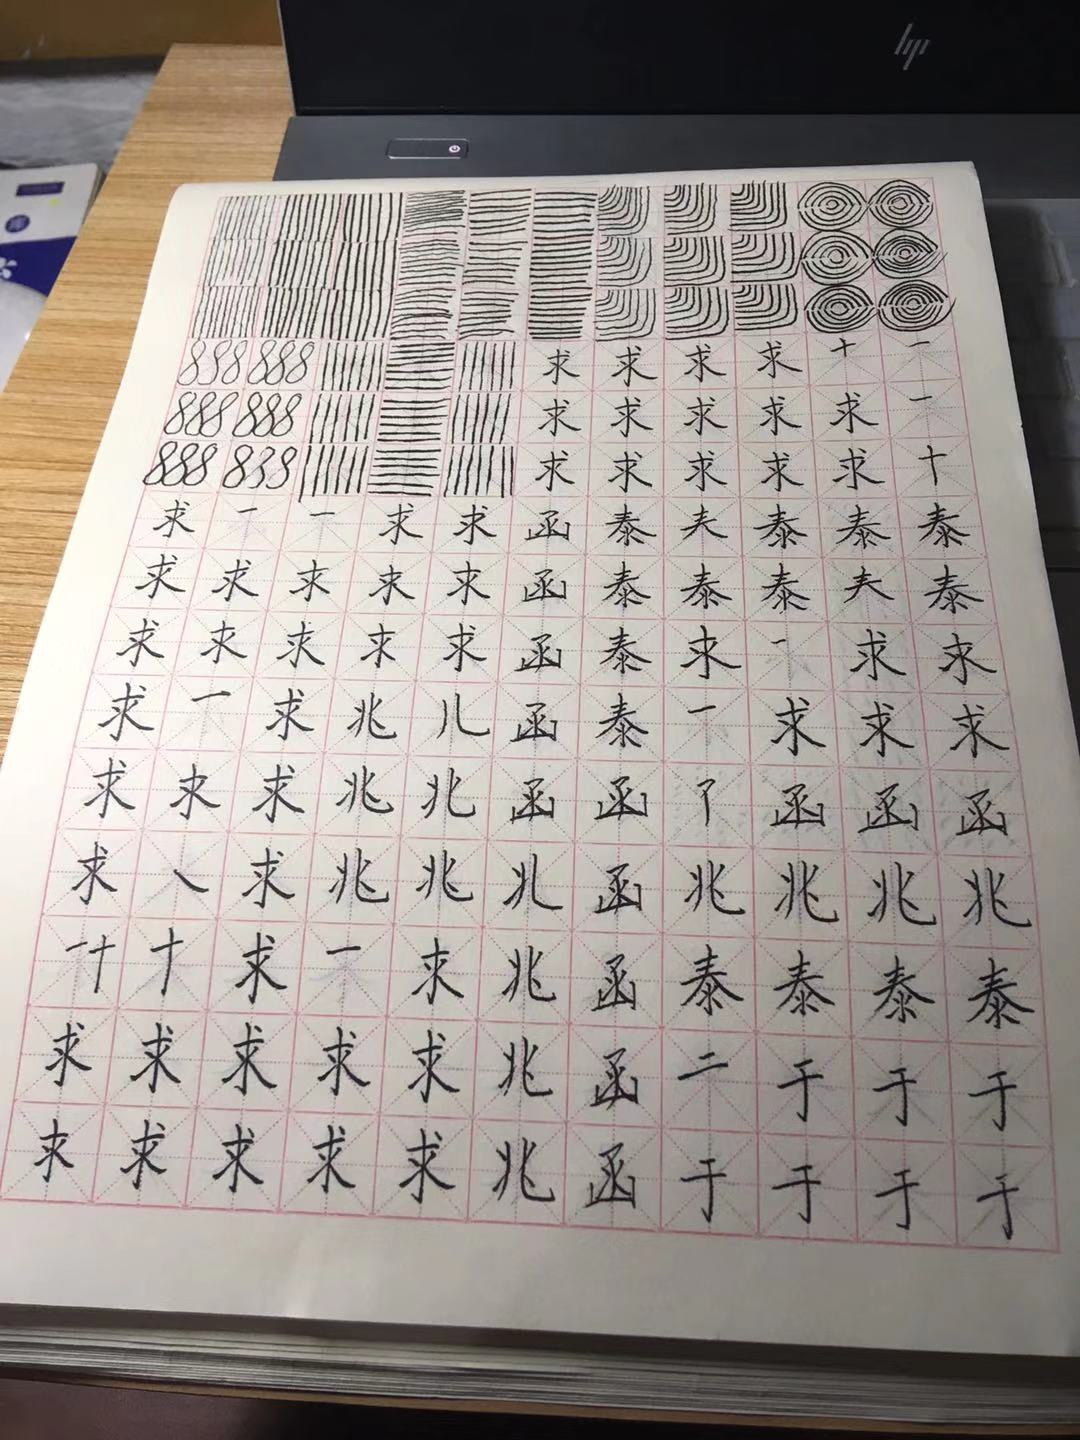 hp
838 888 求 求 求 求 十 一
888 888 求 求 求 求 求 一
888 838 求 求 求 求 求 十
求 一 一 求 求 函 泰 夫 泰 泰 泰
求 求 求 求 求 函 泰 泰 泰 夫 泰
求 求 求 求 求 函 泰 求 一 求 求
求 一 求 兆 儿 函 泰 一 求 求 求
求 求 求 兆 兆 函 函 了 函 函 函
求 求 兆 兆 兆 函 兆 兆 兆 兆
一十 十 求 一 求 兆 函 泰 泰 泰 泰
求 求 求 求 求 兆 函 二 于 于 于
求 求 求 求 求 兆 函 于 于 于 于